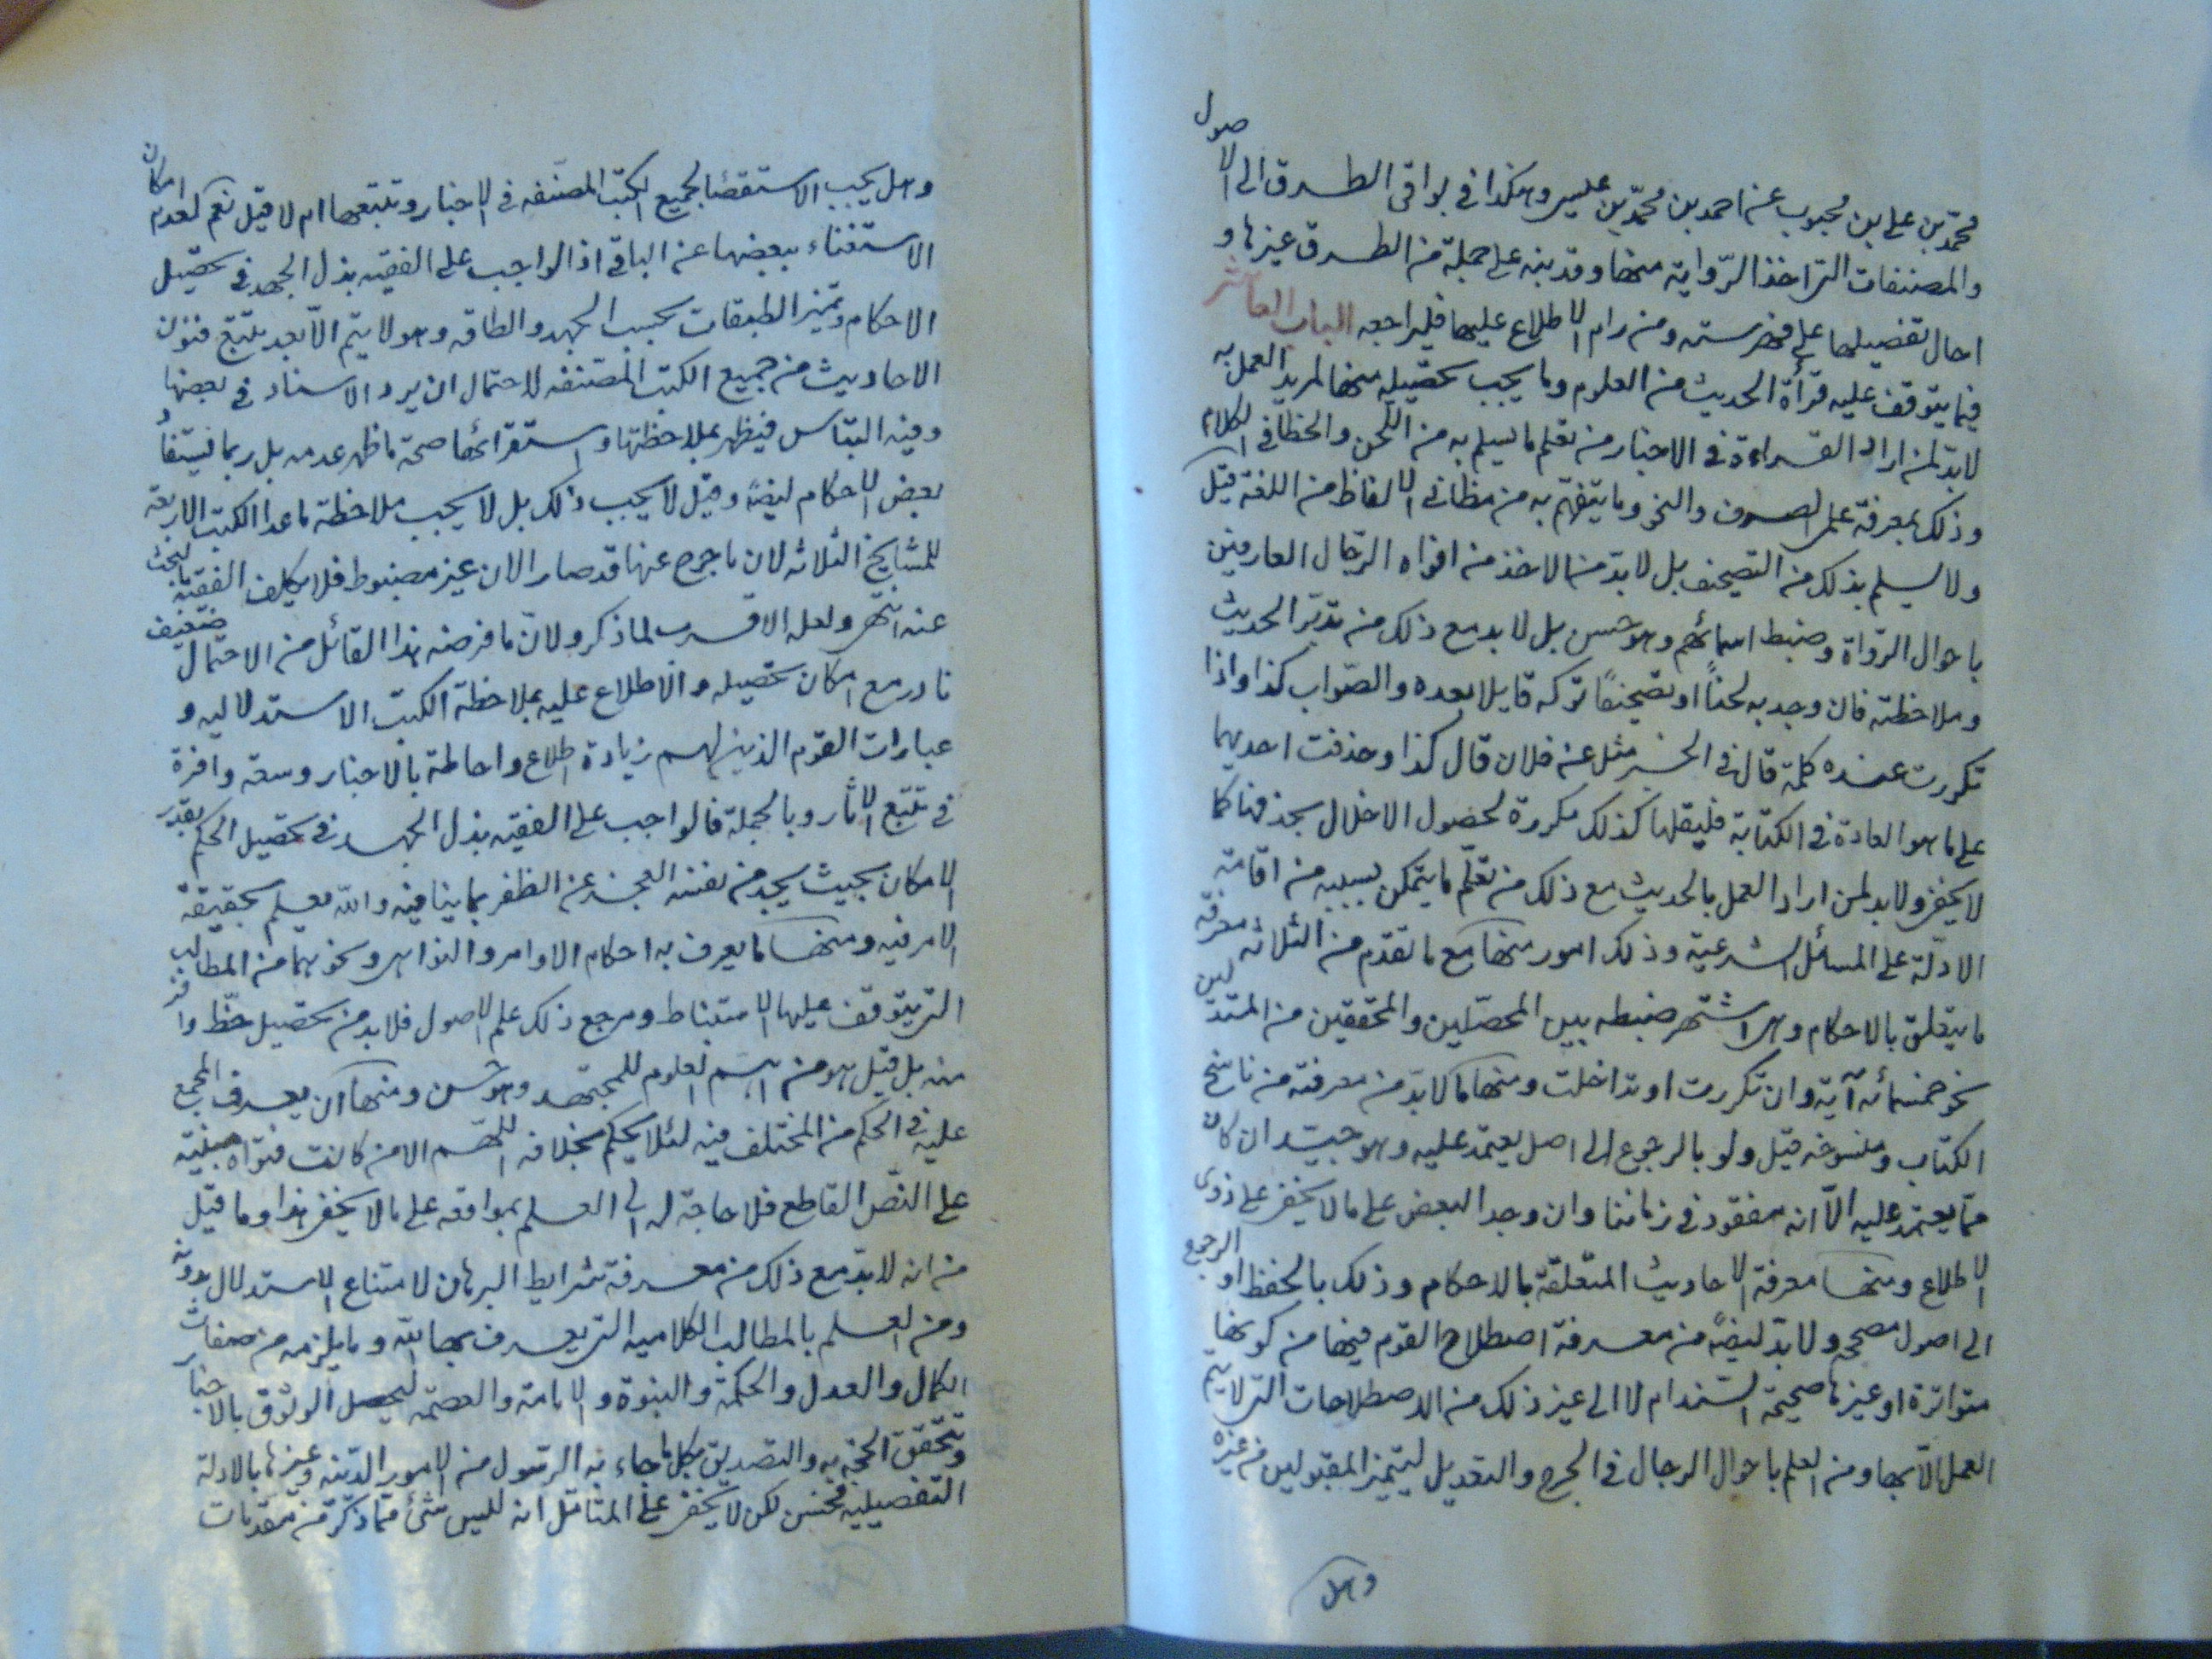 محمّد بن على بن محبوب عن احمد بن محمّد بن عيسى وهكذا فى بواقى الطرق الى الاصول
والمصنفات التى اخذ الرّواية منها وقد بنه على جملة من الطرق غيرها و
احال تفصيلها على فهرسته ومن رام الاطلاع عليها فليراجعه الباب العاشر
فيما يتوقف عليه قرأة الحديث من العلوم وما يجب تحصيله منها لمريد العمل به
لابدّ لمن اراد القراءة فى الاخبار من تعلم ما يسلم به من اللحن والخطا فى الكلام
وذلك بمعرفة علمى الصرف والنحو وما يتفهّم به من مظانى الالفاظ من اللغة قيل
ولا يسلم بذلك من التصحيف بل لابد من الاخذ من افواه الرّجال العارفين
باحوال الرّواة وضبط اسمائهم وهو حسن بل لابد مع ذلك من تدبّر الحديث
وملاحظته فان وجد به لحناً او تصحيفاً تركه قايلا بعده والصّواب كذا واذا
تكررت عنده كلمة قال فى الخبر مثل عن فلان قال كذا وحذفت احديهما
على ما هو العادة فى الكتابة فليقلها كذلك مكررة لحصول الاخلال بحذفها كما
لا يخفى ولابد لمن اراد العمل بالحديث مع ذلك من تعلّم ما يتمكن بسببه من اقامته
الادلّة على المسائل الشرعية وذلك امور منها مع ما تقدم من الثلاثه معرفة
ما يتعلق بالاحكام وهى اشتهر ضبطه بين المحصّلين والمحققين من المتدلين
نحو خمسمائه آية وان تكررت او تداخلت ومنها ما لابدّ من معرفته من ناسخ
الكتاب ومنسوخه قيل ولو بالرجوع الى اصل يعتمد عليه وهو جيّد ان كان
ممّا يعتمد عليه الّا انه مفقود فى زماننا وان وجد البعض على ما لا يخفى على ذوى
الاطلاع ومنها معرفة الاحاديث المتعلّقة بالاحكام وذلك بالحفظ او الرجوع
الى اصول مصححه ولابدّ ايضاً من معرفة اصطلاح القوم فيها من كونها
متواترة او غيرها صحيحة السند ام لا الى غير ذلك من الاصطلاحات التى لا يتم
العمل الّا بها ومن العلم باحوال الرجال فى الجرح والتعديل ليتميز المقبولين من غيره
وهل
وهل يجب الاستقصا لجميع الكتب المصنّفه فى الاخبار وتتبعها ام لا قيل نعم لعدم امكان
الاستغناء ببعضها عن الباقى اذ الواجب على الفقيه بذل الجهد فى تحصّيل
الاحكام وتميز الطبقات بحسب الجهد والطاقه وهو لا يتم الّا بعد تتبّع فنون
الاحاديث من جميع الكتب المصنفه لاحتمال ان يرد الاسناد فى بعضها
وفيه التباس فيظهر بملاحظتها واستقرائها صحة ما ظهر عدمه بل ربما يستفاد
بعض الاحكام ايضاً وقيل لا يجب ذلك بل لا يجب ملاحظة ما عدا الكتب الاربعة
للمشايخ الثلاثه لان ما خرج عنها قد صار الان غير مضبوط فلا يكلف الفقيه بالبحث
عنه انتهى ولعله الاقرب لما ذكر ولانّ ما فرضه هذا القائل من الاحتمال ضعيف
نادر مع امكان تحصيله والاطلاع عليه بملاحظة الكتب الاستدلاليه و
عبارات القوم الذين لهم زيادة اطلاع واحاطة بالاخبار وسعة وافرة
فى تتبّع الاثار وبالجملة فالواجب على الفقيه بذل الجهد فى تحصيل الحكم بقدر
الامكان بحيث يجد من نفسه العجز عن الظفر بما ينافيه والله يعلم بحقيقة
الامر فيه ومنها ما يعرف به احكام الاوامر والنواهى ونحوهما من المطالب
التى يتوقف عليها الاستنباط ومرجع ذلك علم الاصول فلابد من تحصيل حظّ وافر
منه بل قيل هو من اهم العلوم للمجتهد وهو حسن ومنها ان يعرف المجمع
عليه فى الحكم من المختلف فيه لئلا يحكم بخلافه اللهم الا من كانت فتواه مبنيّه
على النّص القاطع فلا حاجة له الى العلم بموافقه على ما لا يخفى هذا وما قيل
من انه لابدّ مع ذلك من معرفة شرايط البرهان لامتناع الاستدلال بدونه
ومن العلم بالمطالب الكلاميه التى يعرف بها الله وما يلزمه من صفات
الكمال والعدل والحكمة والنبوة والامامة والعصمة ليحصل الوثوق بالاخبار
وتتحقق الحجّيه والتصديق بكل ما جاء به الرّسول من الامور الدّينه وغيرها بالادلة
التفصيليه فحسن لكن لا يخفى على المتامّل انه لليس شئ ممّا ذكر من مقدمات